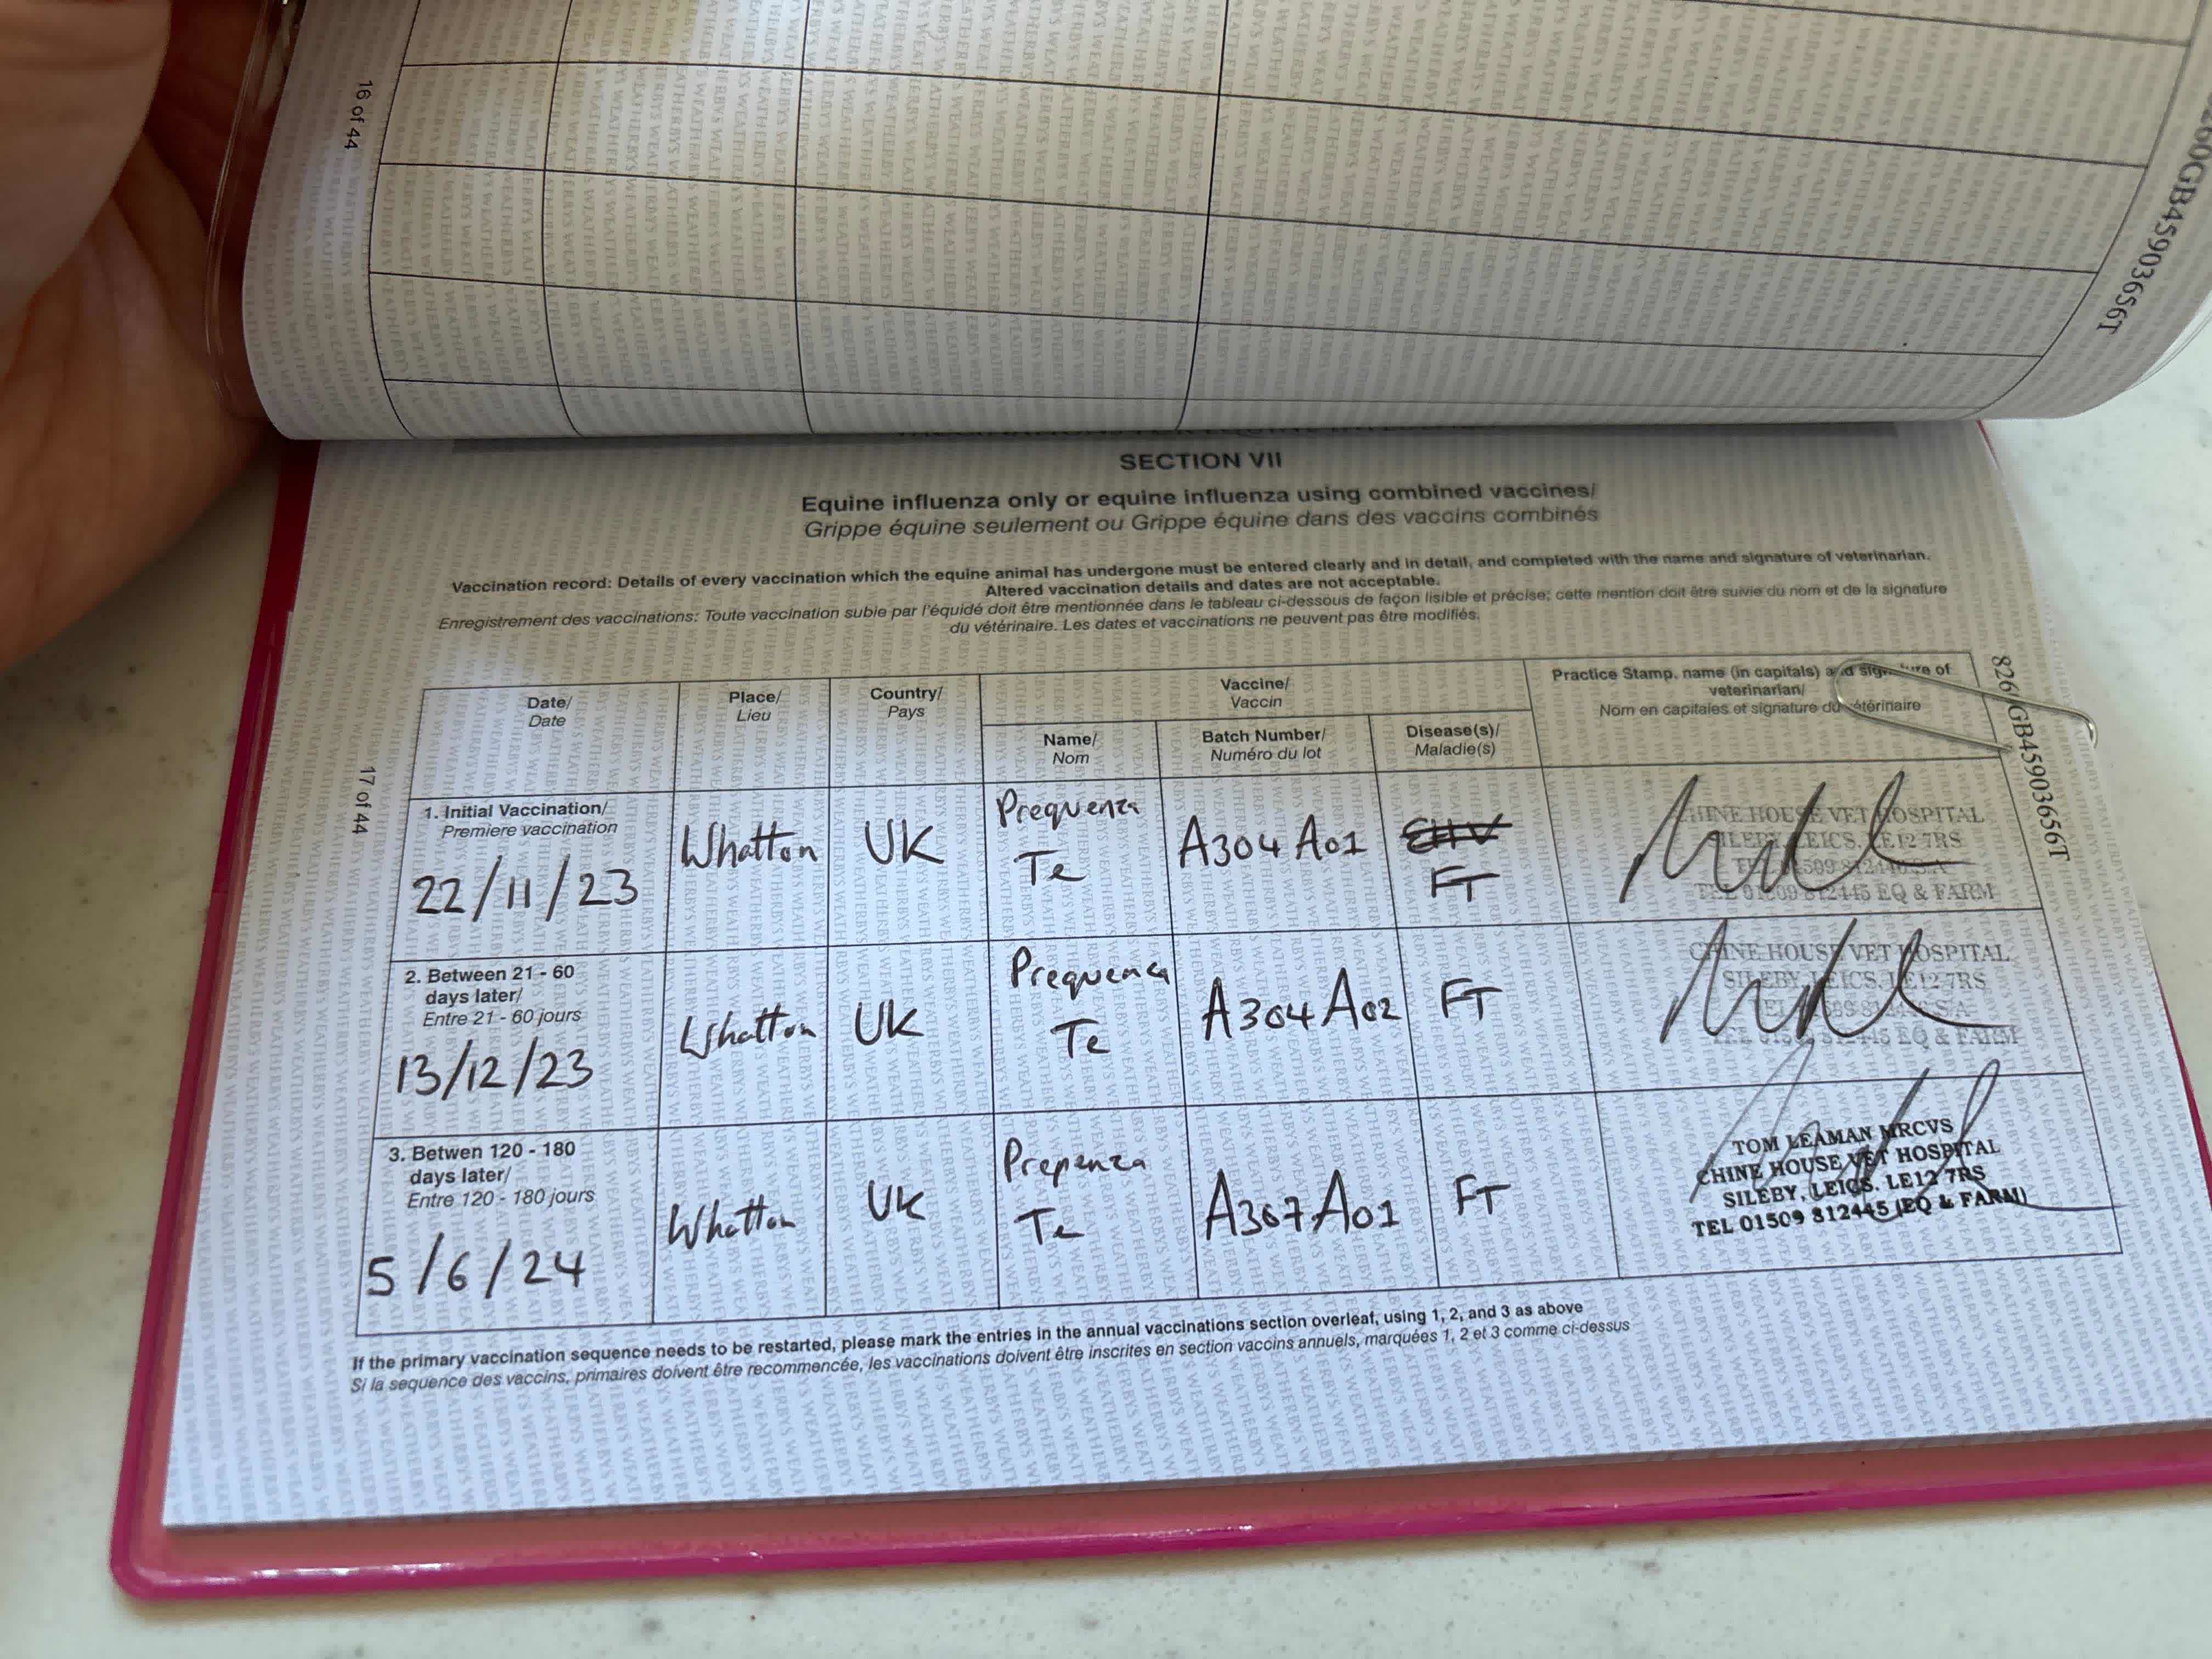 16 of 44
60GB45903656T
SECTION VII
Equine influenza only or equine influenza using combined vaccines/
Grippe équine seulement ou Grippe équine dans des vaccins combinés
Vaccination record: Details of every vaccination which the equine animal has undergone must be entered clearly and in detail, and completed with the name and signature of veterinarian.
Altered vaccination details and dates are not acceptable.
Enregistrement des vaccinations: Toute vaccination subie par l'équidé doit être mentionnée dans le tableau ci-dessous de façon lisible et précise; cette mention doit être suivie du nom et de la signature
du vétérinaire. Les dates et vaccinations ne peuvent pas être modifiés.
Date/
Date
Place/
Lieu
Country/
Pays
Vaccine/
Vaccin
Name/
Nom
Batch Number/
Numéro du lot
Disease(s)/
Maladie(s)
Practice Stamp, name (in capitals) and signature of
veterinarian/
Nom en capitales et signature du vétérinaire
826 GB45903656T
17 of 44
1. Initial Vaccination/
Premiere vaccination
22/11/23
Whatton
UK
Prequenza
Te
A304A01
EHV
FT
CHINE HOUSE VET HOSPITAL
SILEBY, LEICS. LE12 7RS
TEL 01509 812445 EQ & FARM
2. Between 21 - 60
days later/
Entre 21 - 60 jours
13/12/23
Whatton
UK
Prequenza
Te
A304A02
FT
CHINE HOUSE VET HOSPITAL
SILEBY, LEICS. LE12 7RS
TEL 01509 812445 EQ & FARM
3. Betwen 120 - 180
days later/
Entre 120 - 180 jours
5/6/24
Whatton
UK
Prequenza
Te
A367A01
FT
TOM LEAMAN MRCVS
CHINE HOUSE VET HOSPITAL
SILEBY, LEICS. LE12 7RS
TEL 01509 812445 (EQ & FARM)
If the primary vaccination sequence needs to be restarted, please mark the entries in the annual vaccinations section overleaf, using 1, 2, and 3 as above
Si la sequence des vaccins, primaires doivent être recommencée, les vaccinations doivent être inscrites en section vaccins annuels, marquées 1, 2 et 3 comme ci-dessus